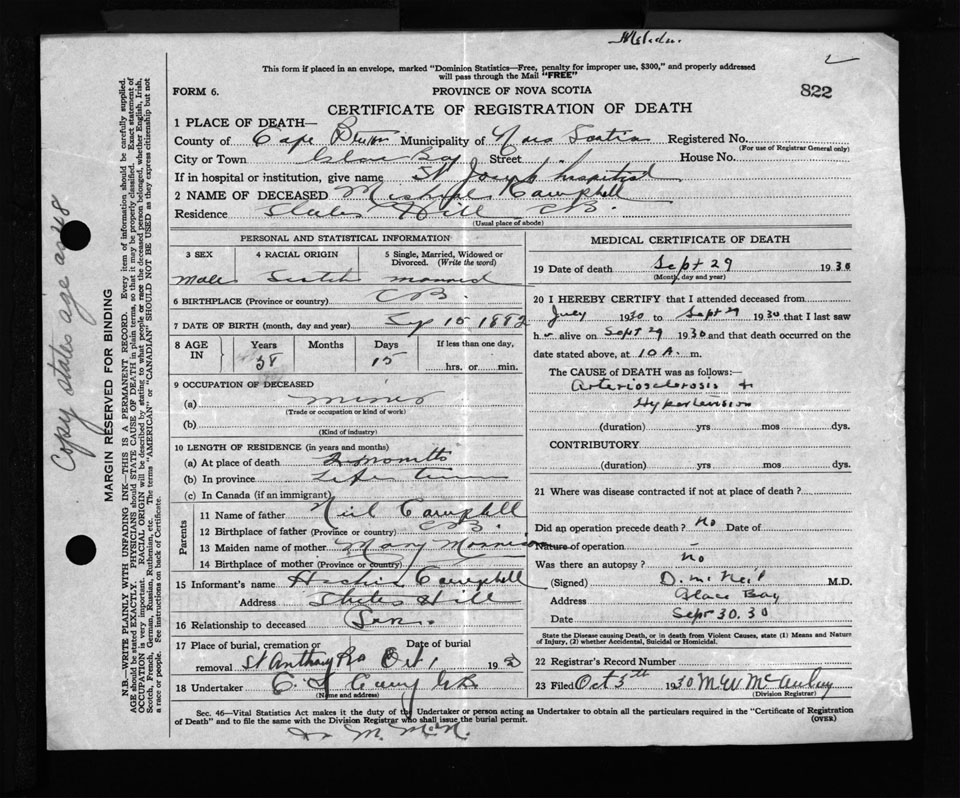 This form if placed in an envelope, marked "Dominion Statistics—Free, penalty for improper use, $300," and properly addressed
will pass through the Mail "FREE"
FORM 6.
PROVINCE OF NOVA SCOTIA
822
CERTIFICATE OF REGISTRATION OF DEATH
1 PLACE OF DEATH—
County of Cape Breton Municipality of Nova Scotia Registered No.
(For use of Registrar General only)
City or Town Glace Bay Street House No.
If in hospital or institution, give name St Joseph hospital
2 NAME OF DECEASED Campbell
Residence Hill CB.
(Usual place of abode)
PERSONAL AND STATISTICAL INFORMATION
3 SEX 4 RACIAL ORIGIN 5 Single, Married, Widowed or Divorced. (Write the word)
Male Scotch married
6 BIRTHPLACE (Province or country) CB.
7 DATE OF BIRTH (month, day and year) Sep 15 1882
8 AGE IN Years Months Days If less than one day,
58 15 hrs. or min.
9 OCCUPATION OF DECEASED
(a) miner
(Trade or occupation or kind of work)
(b)
(Kind of industry)
10 LENGTH OF RESIDENCE (in years and months)
(a) At place of death 2 months
(b) In province Life
(c) In Canada (if an immigrant)
Parents
11 Name of father Neil Campbell
12 Birthplace of father (Province or country) CB.
13 Maiden name of mother Mary Morrison
14 Birthplace of mother (Province or country)
15 Informant's name Campbell
Address Hill
16 Relationship to deceased Son.
17 Place of burial, cremation or removal St Anthony Date of burial Oct 1 19
18 Undertaker
(Name and address)
MEDICAL CERTIFICATE OF DEATH
19 Date of death Sept 29 1930
(Month, day and year)
20 I HEREBY CERTIFY that I attended deceased from
July 1930 to Sept 29 1930 that I last saw
h alive on Sept 29 1930 and that death occurred on the
date stated above, at 10 A. m.
The CAUSE OF DEATH was as follows:—
Arteriosclerosis +
Hypertension
(duration) yrs mos dys.
CONTRIBUTORY
(duration) yrs mos dys.
21 Where was disease contracted if not at place of death?
Did an operation precede death? No Date of
Nature of operation
Was there an autopsy? no
(Signed) D. McNeil M.D.
Address Glace Bay
Date Sept 30. 30
State the Disease causing Death, or in death from Violent Causes, state (1) Means and Nature
of Injury, (2) whether Accidental, Suicidal or Homicidal.
22 Registrar's Record Number
23 Filed Oct 5th 1930 M W McAulay
(Division Registrar)
Sec. 46—Vital Statistics Act makes it the duty of the Undertaker or person acting as Undertaker to obtain all the particulars required in the "Certificate of Registration
of Death" and to file the same with the Division Registrar who shall issue the burial permit.
(OVER)
Copy states age as 48
MARGIN RESERVED FOR BINDING
N.B.—WRITE PLAINLY WITH UNFADING INK—THIS IS A PERMANENT RECORD. Every item of information should be carefully supplied.
AGE should be stated EXACTLY. PHYSICIANS should STATE CAUSE OF DEATH in plain terms, so that it may be properly classified. Exact statement of
OCCUPATION is very important. RACIAL ORIGIN will be described by stating to what people or race the deceased person belonged, whether English, Irish,
Scotch, French, German, Russian, Ruthenian, etc. The terms "AMERICAN" or "CANADIAN" SHOULD NOT BE USED as they express citizenship but not
a race or people. See instructions on back of Certificate.